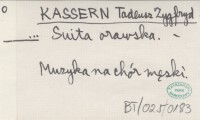 o KASSERN Tadeusz Zygfryd
... Suita orawska. -
Muzyka na chór męski.
BT/0250/83